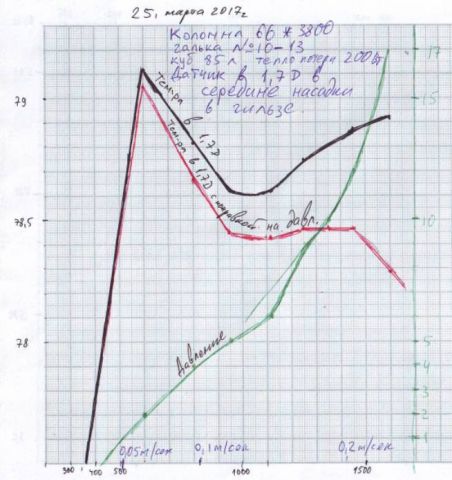 25, марта 2017г
Колонна 66 * 3800
галька №10-13
куб 85 л, тепло потери 200 вт
Датчик в 1,7D в
середине насадки
в гильзе.
17
79
15
Темп-ра в 1,7D
Темп-ра в 1,7D с поправкой на давл.
78,5
10
78
Давление
5
4
3
2
1
0,05м/сек 0,1м/сек 0,2м/сек
300 400 500 1000 1500